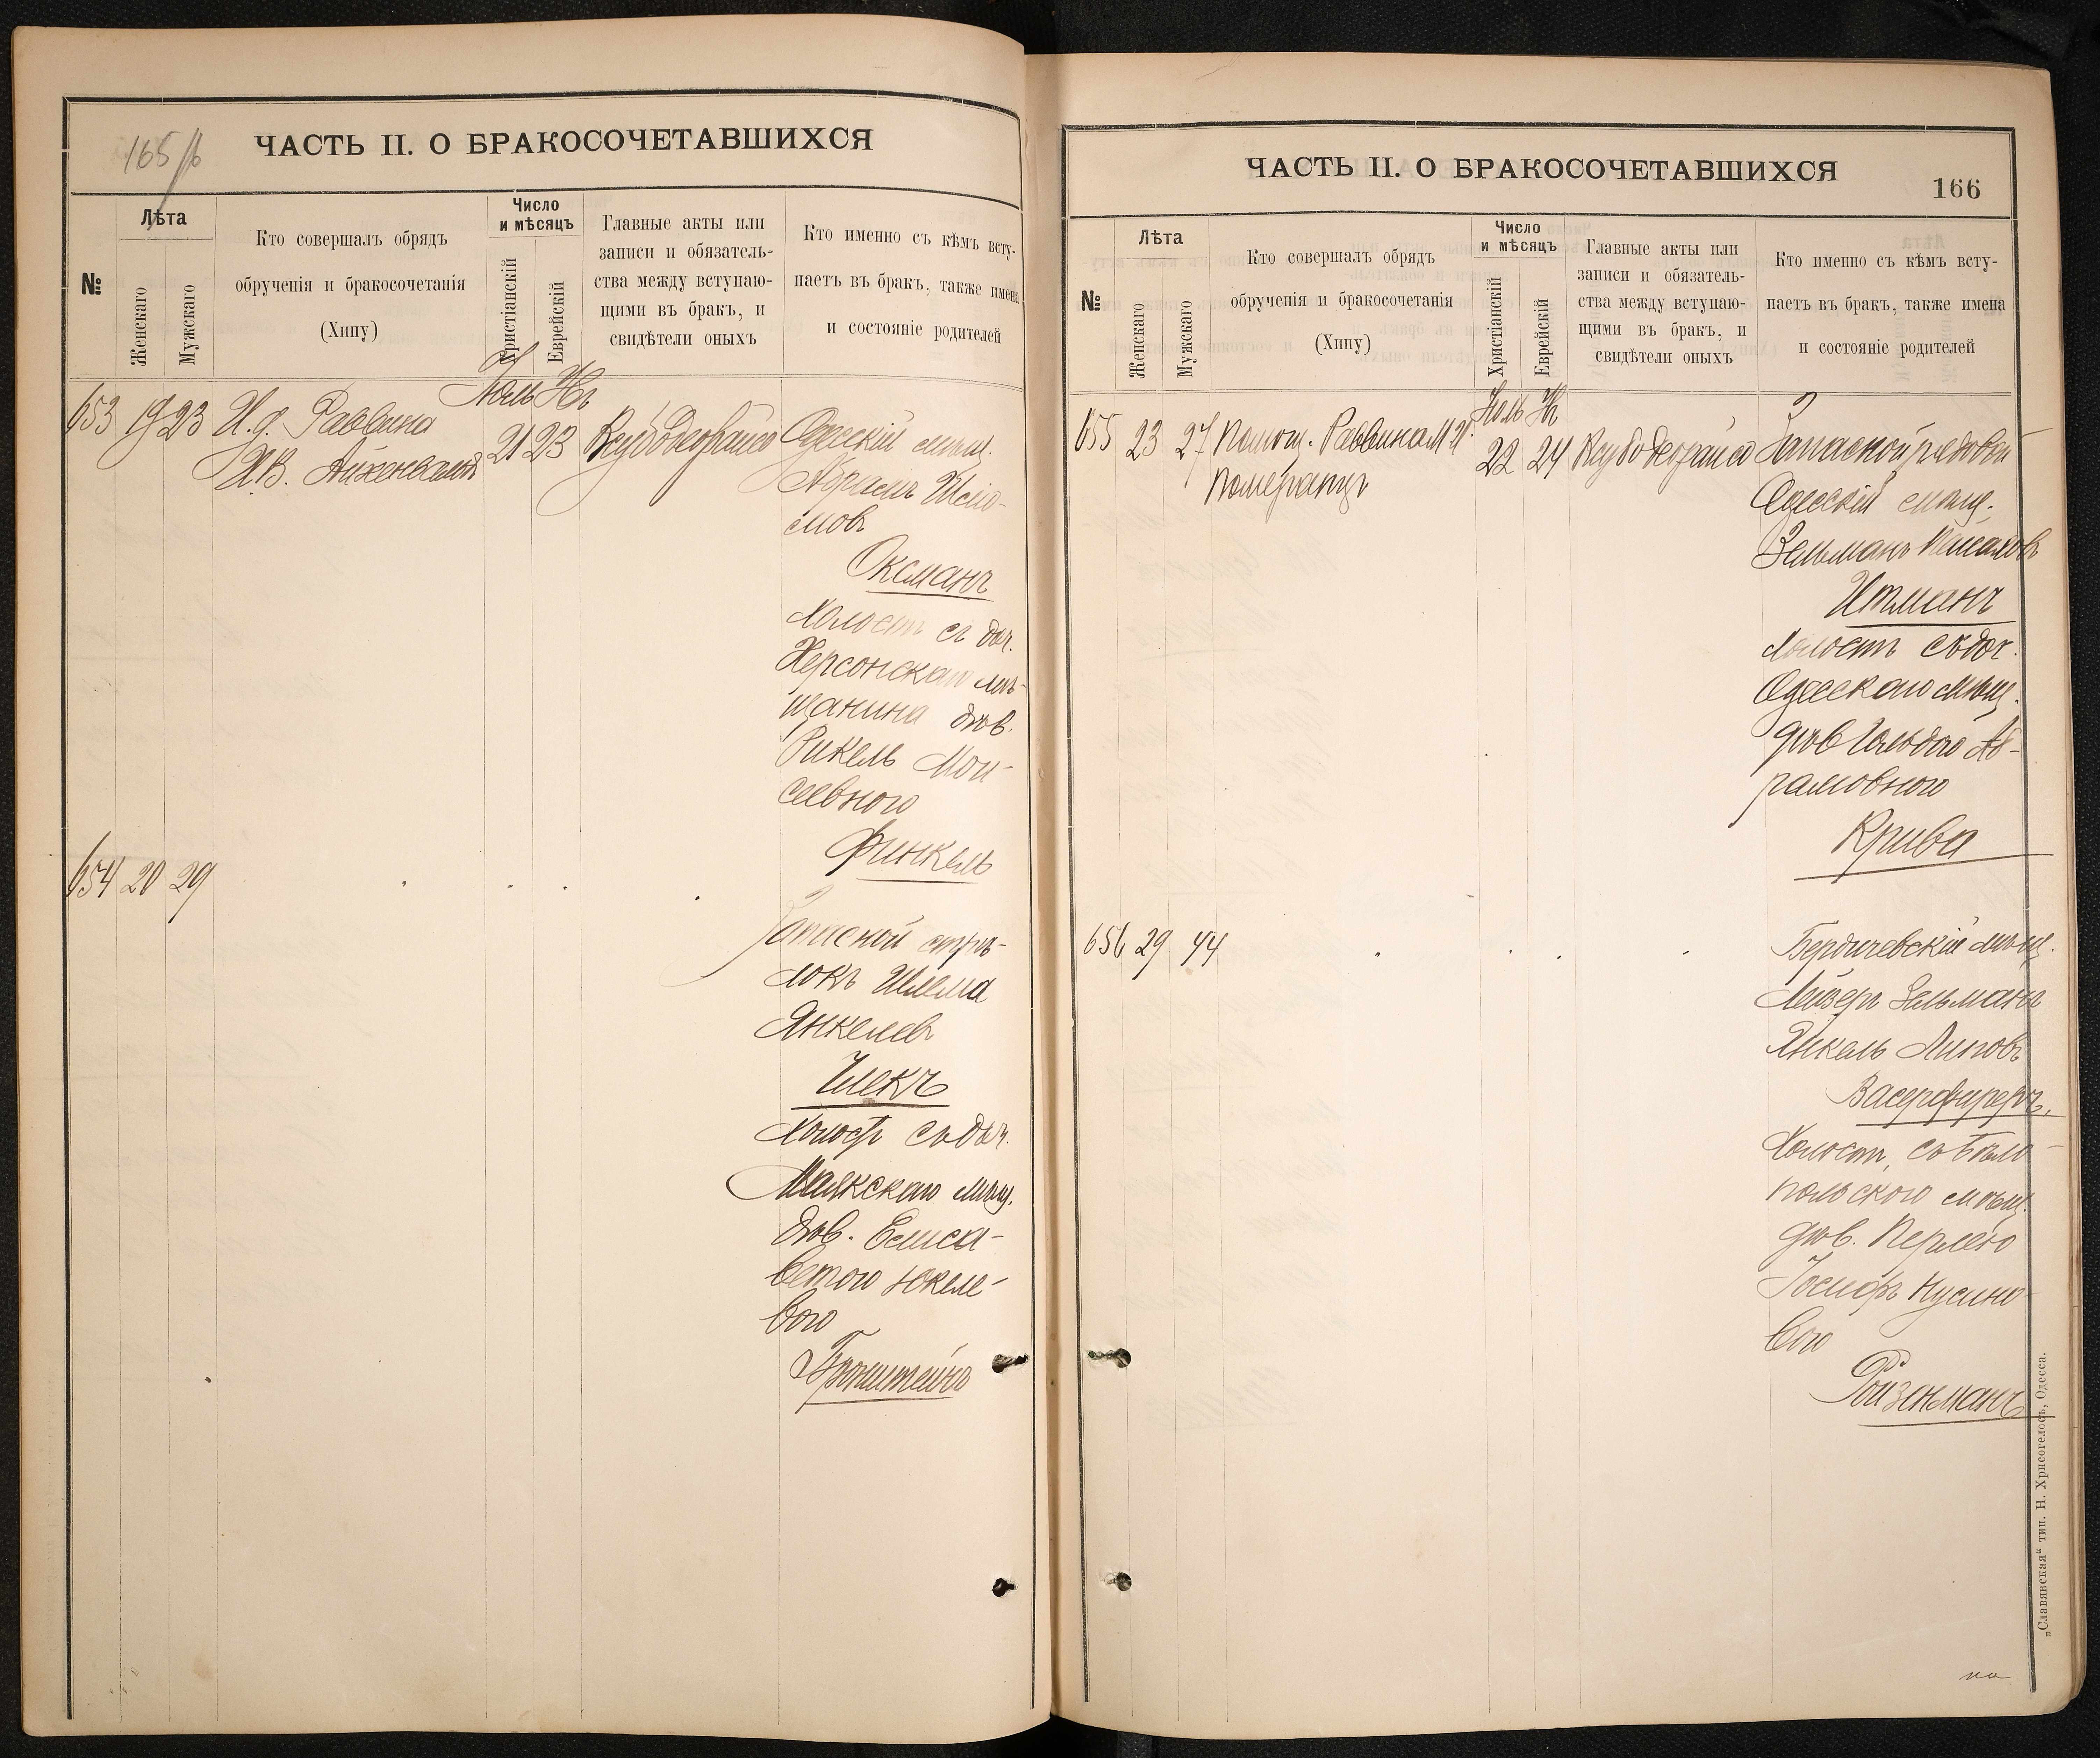 165/б
ЧАСТЬ II. О БРАКОСОЧЕТАВШИХСЯ
№
Лѣта
Женскаго
Мужскаго
Кто совершалъ обрядъ
обрученія и бракосочетанія
(Хипу)
Число
и мѣсяцъ
Христіанскій
Еврейскій
Главные акты или
записи и обязатель-
ства между вступаю-
щими въ бракъ, и
свидѣтели оныхъ
Кто именно съ кѣмъ всту-
паетъ въ бракъ, также имена
и состояніе родителей
653 19 23 И.д. Раввина
И.В. Айхенвальд
21 23
Одесскій мѣщ.
Абрамъ Шліо-
мовъ
Оксманъ
Холостъ съ дѣв.
Херсонскаго мѣ-
щанина дѣв.
Рикель Мои-
сеевною
Финкель
654 20 29
Запасной стрѣ-
локъ Шлема
Янкелевъ
Холостъ съ дѣв.
Маякскаго мѣщ.
дѣв. Елиса-
ветою Юкеле-
вою
Бронштейнъ
ЧАСТЬ II. О БРАКОСОЧЕТАВШИХСЯ
166
№
Лѣта
Женскаго
Мужскаго
Кто совершалъ обрядъ
обрученія и бракосочетанія
(Хипу)
Число
и мѣсяцъ
Христіанскій
Еврейскій
Главные акты или
записи и обязатель-
ства между вступаю-
щими въ бракъ, и
свидѣтели оныхъ
Кто именно съ кѣмъ всту-
паетъ въ бракъ, также имена
и состояніе родителей
655 23 27 Помощ. Раввина
Померанцъ
22 24
Запасной рядовой
Одесскій мѣщ.
Зельманъ
Итманъ
Холостъ съ доч.
Одесскаго мѣщ.
дѣв Гольдою Аб-
рамовною
Крива
656 29 44
Бердичевскій мѣщ.
Лейзеръ Зельманъ
Янкель Липовъ
Васерфиреръ,
Холост, съ Бѣло-
польскою мѣщ.
дѣв. Перлею
Іосифъ Нусино-
вою
Ройзенманъ
„Славянская“ тип. Н. Хрисогелосъ, Одесса.